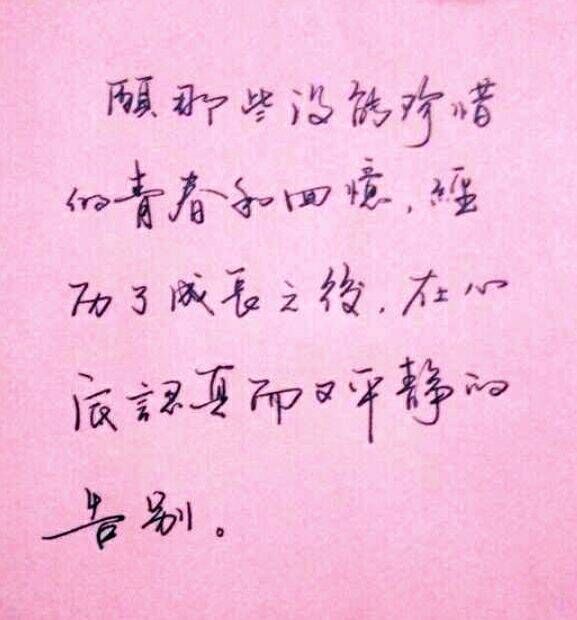 願那些没能珍惜
的青春和回憶，經
历了成長之後，在心
底認真而又平静的
告别。